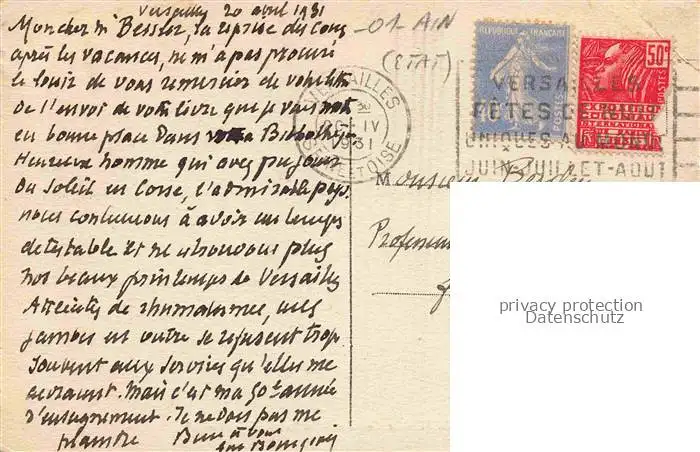 Versailles 20 avril 1931
Mon cher Mr Besson, la reprise des cours
après les vacances, ne m'a pas procuré
le loisir de vous remercier
de l'envoi de votre livre que je vais mettre
en bonne place dans votre Biblioth
Heureux homme qui avez toujours
du soleil en Corse, l'admirable pays.
nous continuons à avoir un temps
détestable et ne retrouvons plus
nos beaux printemps de Versailles
Atteintes de rhumatisme, mes
jambes en outre se refusent trop
souvent aux services qu'elles me
devraient. Mais c'est ma 50e année
d'enseignement. Je ne dois pas me
plaindre Bien à vous
01-AIN
(ETAT)
RÉPUBLIQUE FRANÇAISE
POSTES
50c
POSTES
VERSAILLES
20 IV
1931
SEINE-ET-OISE
VERSAILLES
FÊTES DE NUIT
UNIQUES AU MONDE
JUIN-JUILLET-AOUT
Monsieur
Professeur
privacy protection
Datenschutz